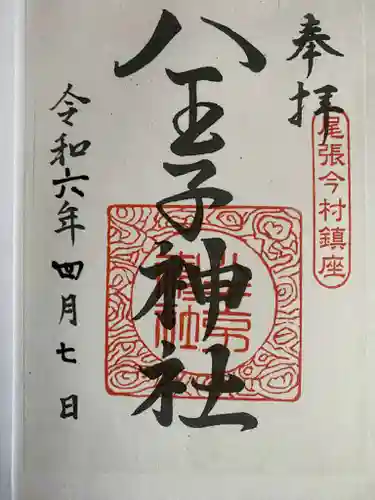 奉拝
尾張今村鎮座
八王子神社
令和六年四月七日